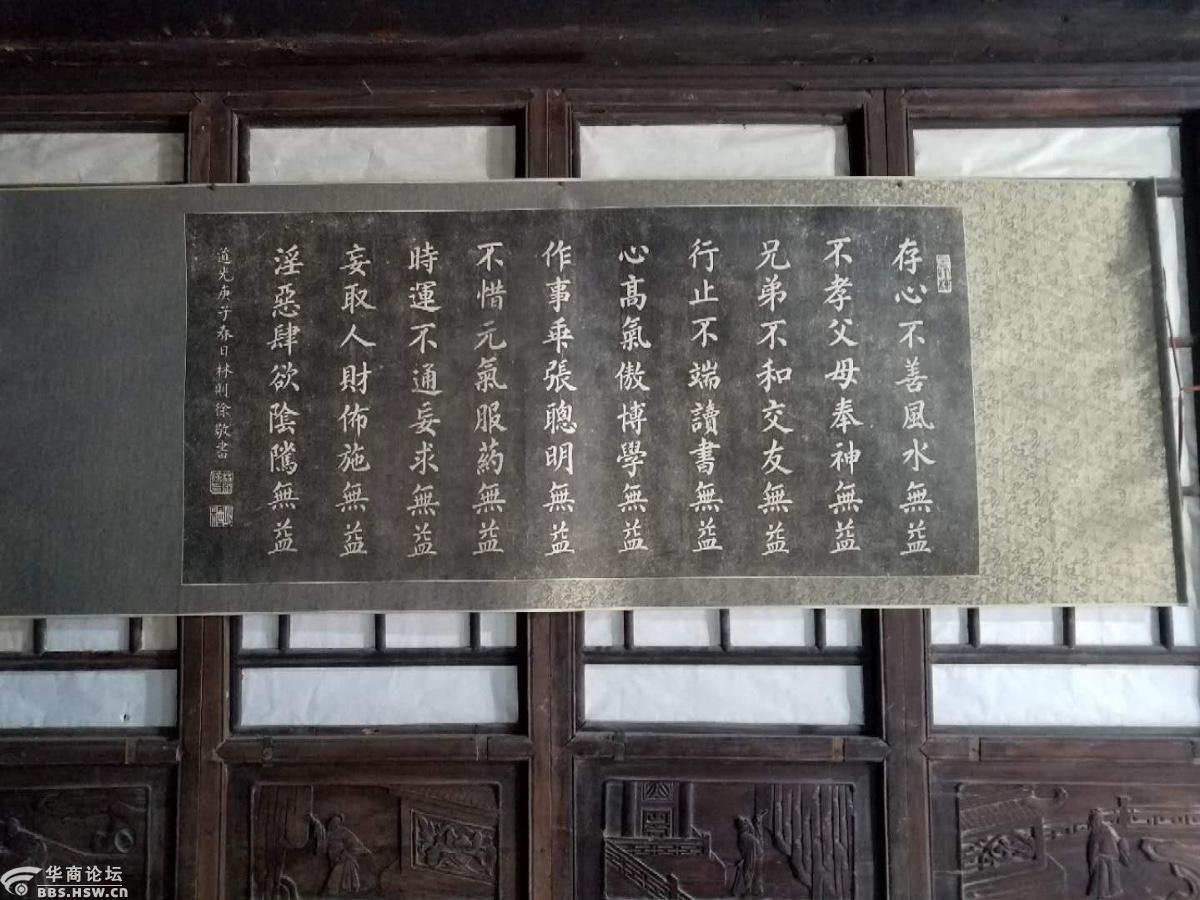 存心不善風水無益
不孝父母奉神無益
兄弟不和交友無益
行止不端讀書無益
心高氣傲博學無益
作事乖張聰明無益
不惜元氣服藥無益
時運不通妄求無益
妄取人財佈施無益
淫惡肆欲陰騭無益
道光庚子春日林則徐敬書
华商论坛
BBS.HSW.CN